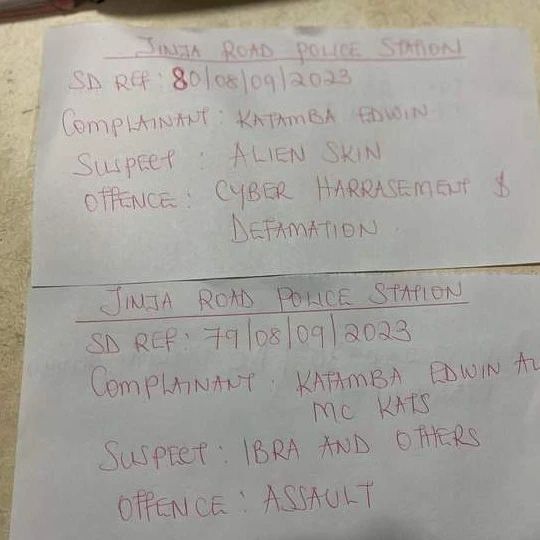 JINJA ROAD POLICE STATION
SD REF: 80/08/09/2023
COMPLAINANT: KATAMBA EDWIN
SUSPECT: ALIEN SKIN
OFFENCE: CYBER HARRASEMENT &
DEFAMATION
JINJA ROAD POLICE STATION
SD REF: 79/08/09/2023
COMPLAINANT: KATAMBA EDWIN
MC KATS
SUSPECT: IBRA AND OTHERS
OFFENCE: ASSAULT